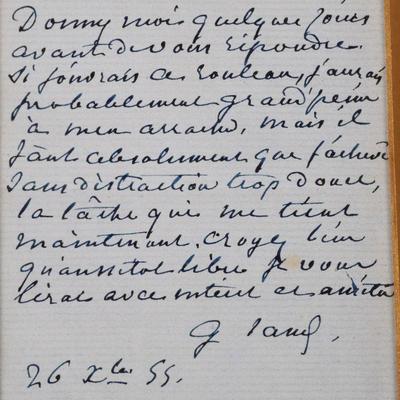 Donnez mois quelques jours
avant de vous répondre.
Si j'ouvrais ce rouleau, j'aurais
probablement grand'peine
à m'en arracher, mais il
faut absolument que j'achève
sans distraction trop douce,
la tâche qui me tient
maintenant. Croyez bien
qu'aussitot libre je vous
lirai avec intérêt et amitié
G Sand.
26 Xbre 55.